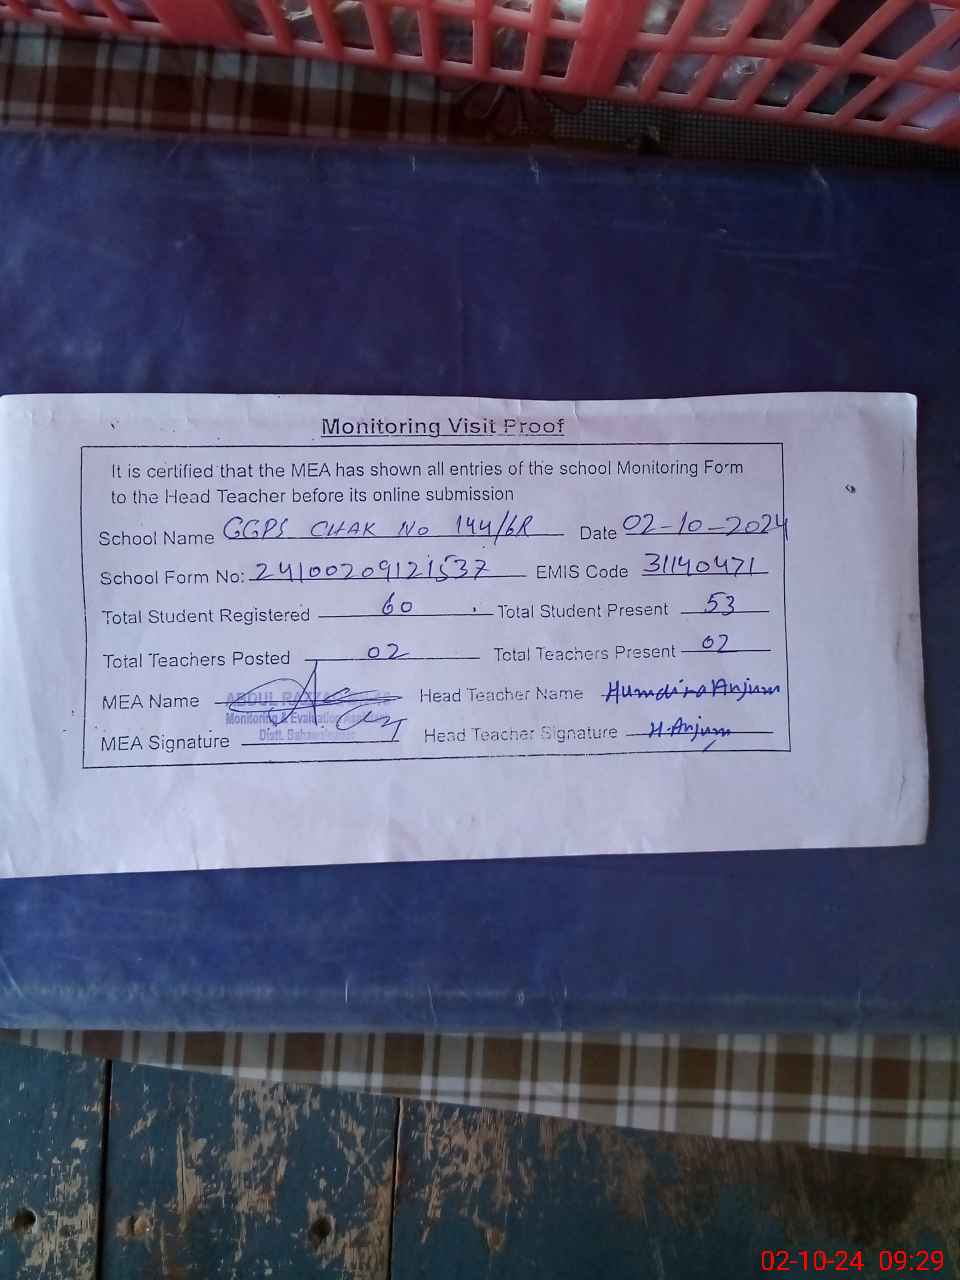 Monitoring Visit Proof
It is certified that the MEA has shown all entries of the school Monitoring Form
to the Head Teacher before its online submission
School Name GGPS CHAK No 144/6R Date 02-10-2024
School Form No: 24100209121537 EMIS Code 31140471
Total Student Registered 60 Total Student Present 53
Total Teachers Posted 02 Total Teachers Present 02
MEA Name ABDUL Head Teacher Name Humdira Anjum
Monitoring & Evaluation
MEA Signature Distt. Head Teacher Signature H.Anjum
02-10-24 09:29